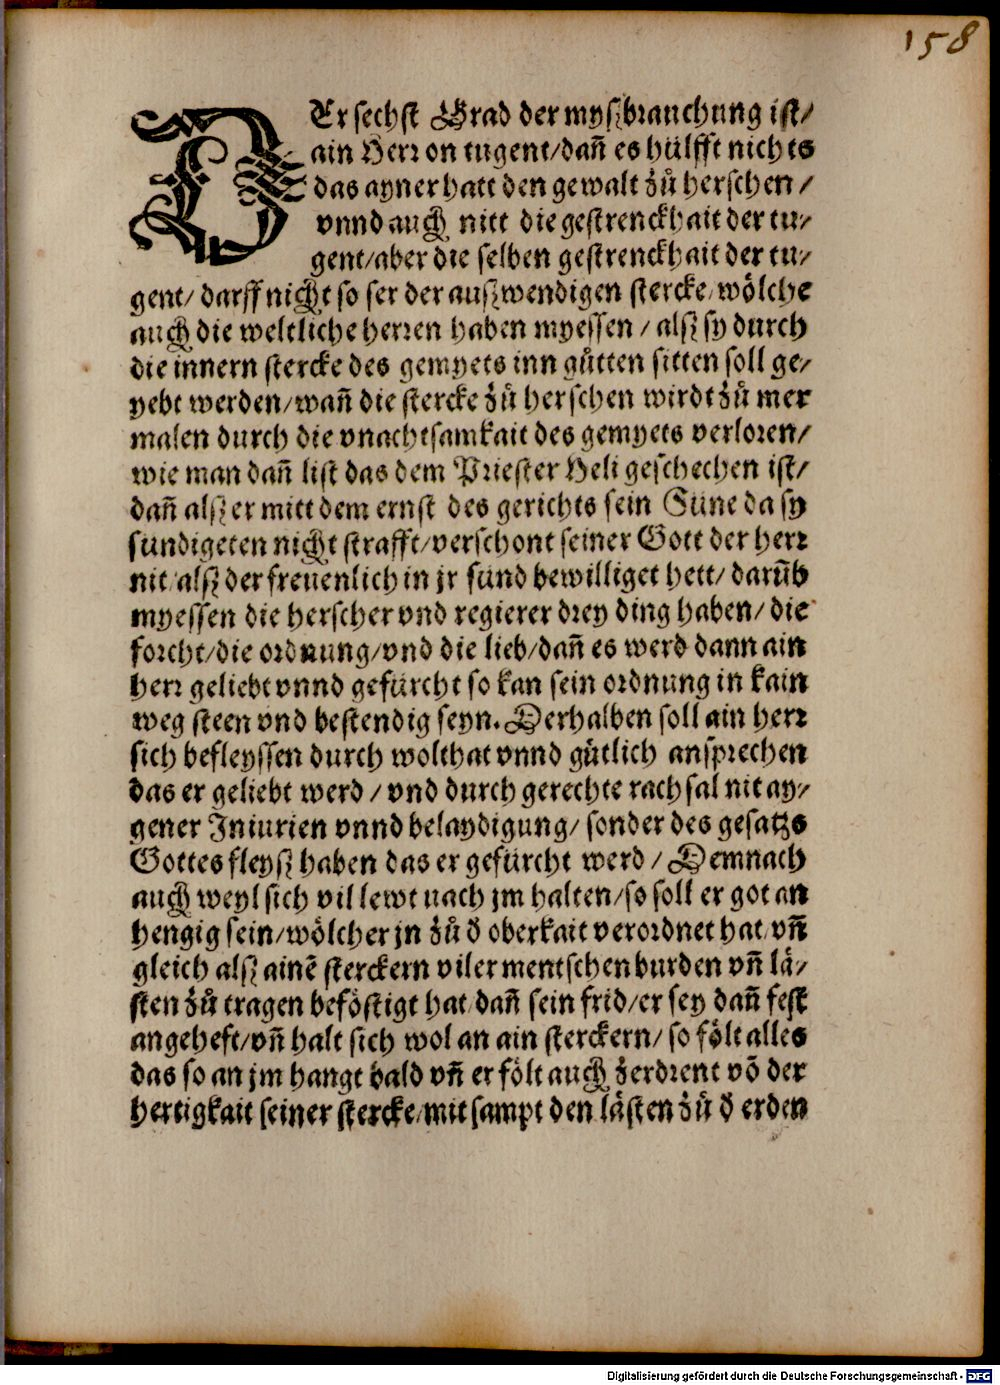 158
DEr sechst Grad der myszbrauchung ist/
ain Herr on tugent/dañ es hülfft nichts
das ayner hatt den gewalt zů herschen/
vnnd auch nitt die gestrenckhait der tu/
gent/aber die selben gestrenckhait der tu/
gent/ darff nicht so ser der auszwendigen stercke/wölche
auch die weltliche herren haben myessen/ alsz sy durch
die innern stercke des gemyets inn gůtten sitten soll ge/
yebt werden/wañ die stercke zů herschen wirdt zů mer
malen durch die vnachtsamkait des gemyets verloren/
wie man dañ list das dem Priester Heli geschechen ist/
dañ alsz er mitt dem ernst des gerichts sein Süne da sy
sündigeten nicht strafft/verschont seiner Gott der herr
nit/alsz der freuenlich in jr sünd bewilliget hett/ darũb
myessen die herscher vnd regierer drey ding haben/ die
forcht/die ordnung/vnd die lieb/dañ es werd dann ain
herr geliebt vnnd gefürcht so kan sein ordnung in kain
weg steen vnd bestendig seyn. Derhalben soll ain herr
sich befleyssen durch wolthat vnnd gůtlich ansprechen
das er geliebt werd/ vnd durch gerechte rachsal nit ay/
gener Iniurien vnnd belaydigung/ sonder des gesatzs
Gottes fleysz haben das er gefürcht werd/ Demnach
auch weyl sich vil lewt nach jm halten/so soll er got an
hengig sein/wölcher jn zů đ oberkait verordnet hat/vñ
gleich alsz ainẽ sterckern viler mentschen burden vñ lä/
sten zů tragen beföstigt hat/dañ sein frid/er sey dañ fest
angeheft/vñ halt sich wol an ain sterckern/ so fölt alles
das so an jm hangt bald vñ er fölt auch zerdrent võ der
hertigkait seiner stercke/mit sampt den lästen zů đ erden
Digitalisierung gefördert durch die Deutsche Forschungsgemeinschaft - DFG